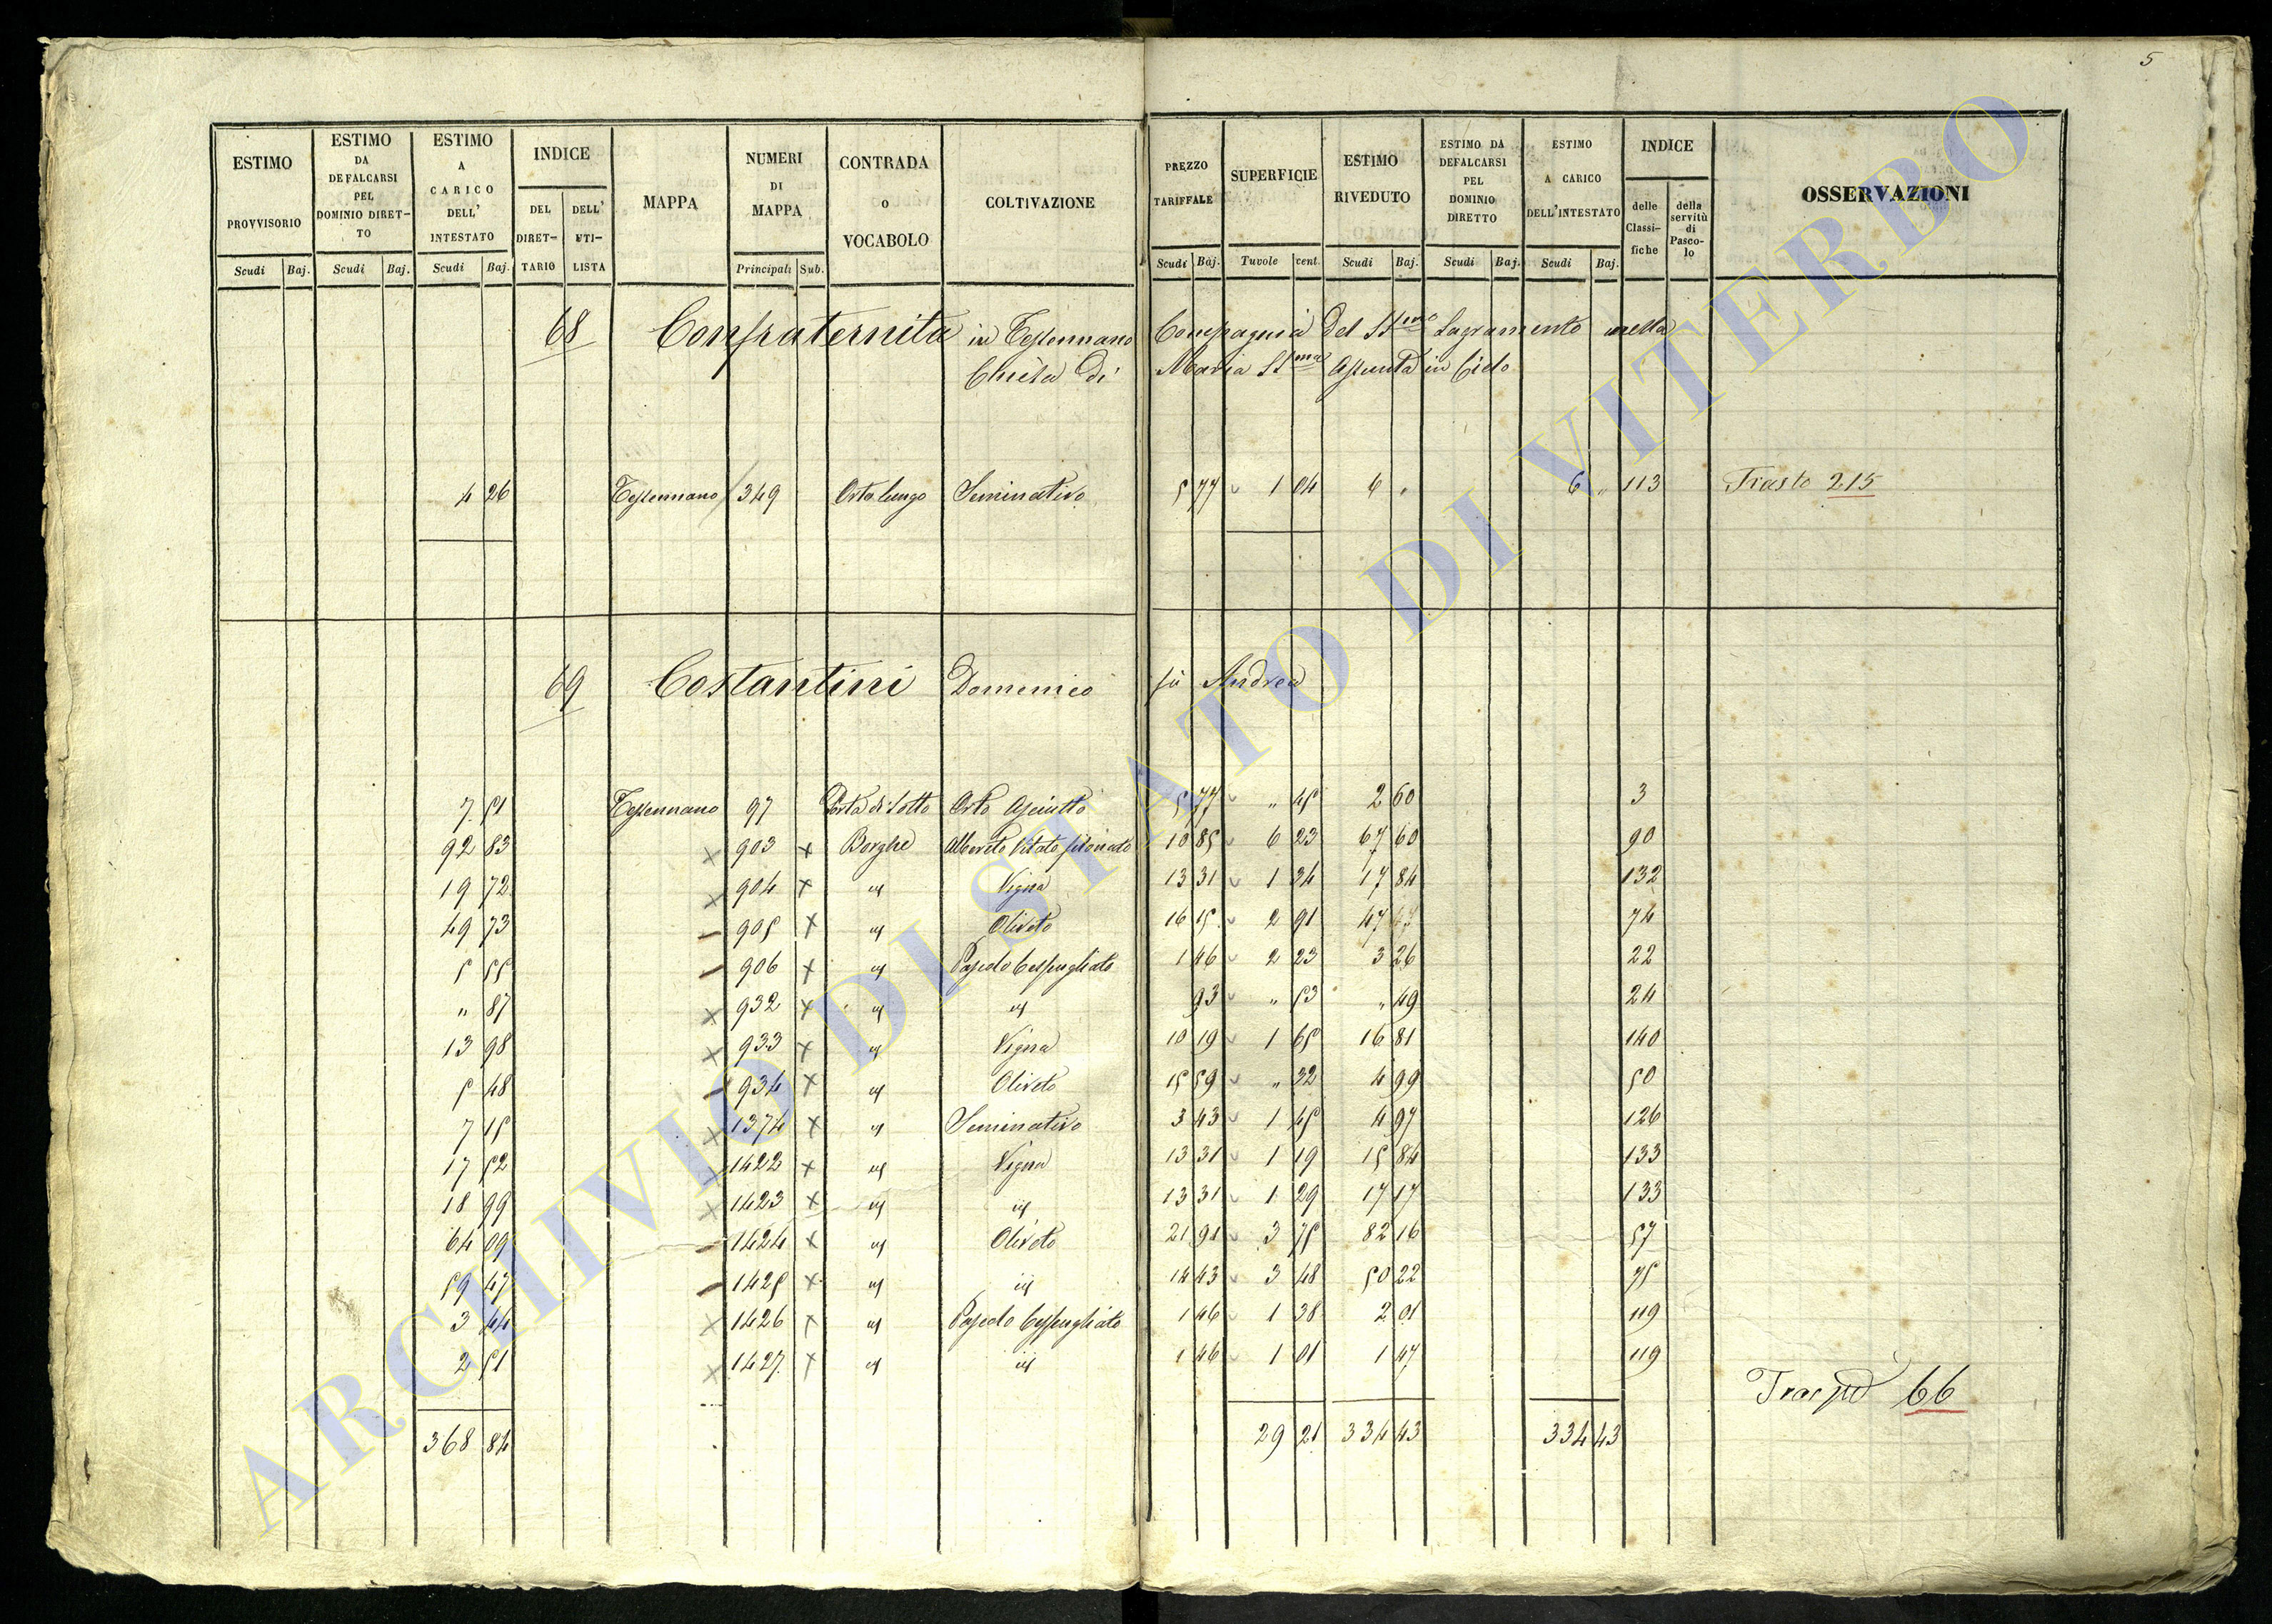 5
ESTIMO PROVVISORIO
ESTIMO DA DEFALCARSI PEL DOMINIO DIRET-TO
ESTIMO A CARICO DELL' INTESTATO
INDICE
DEL DIRET-TARIO
DELL' UTI-LISTA
MAPPA
NUMERI DI MAPPA
CONTRADA o VOCABOLO
COLTIVAZIONE
PREZZO TARIFFALE
SUPERFICIE
ESTIMO RIVEDUTO
ESTIMO DA DEFALCARSI PEL DOMINIO DIRETTO
ESTIMO A CARICO DELL'INTESTATO
INDICE
delle Classi-fiche
della servitù di Pasco-lo
OSSERVAZIONI
Scudi Baj. Scudi Baj. Scudi Baj. Principali Sub. Scudi Baj. Tavole cent. Scudi Baj. Scudi Baj. Scudi Baj.
68 Confraternita in Tessennano Compagnia del SSmo Sagramento nella
Chiesa di Maria SSma Assunta in Cielo
4 26 Tessennano 349 Ortolungo Seminativo 5 77 1 04 6 " 6 " 113 Trasto 215
69 Costantini Domenico fù Andrea
7 51 Tessennano 97 Porta di Sotto Orto Asciutto 5 77 " 45 2 60 3
92 83 903 Borghe Alberato Vitato 10 85 6 23 67 60 90
19 72 904 id Vigna 13 31 1 34 17 84 132
49 73 905 id Oliveto 16 15 2 91 47 74
5 55 906 id Pascolo Cespugliato 1 46 2 23 3 26 22
" 87 932 id id 93 " 53 " 49 24
13 98 933 id Vigna 10 19 1 65 16 81 140
5 48 934 id Oliveto 15 59 " 32 4 99 50
7 15 1374 id Seminativo 3 43 1 45 4 97 126
17 52 1422 id Vigna 13 31 1 19 15 84 133
18 99 1423 id id 13 31 1 29 17 17 133
64 09 1424 id Oliveto 21 91 3 75 82 16 57
59 47 1425 id id 14 43 3 48 50 22 75
3 44 1426 id Pascolo Cespugliato 1 46 1 38 2 01 119
2 51 1427 id id 1 46 1 01 1 47 119
66
368 84 29 21 334 43 334 43
ARCHIVIO DI STATO DI VITERBO